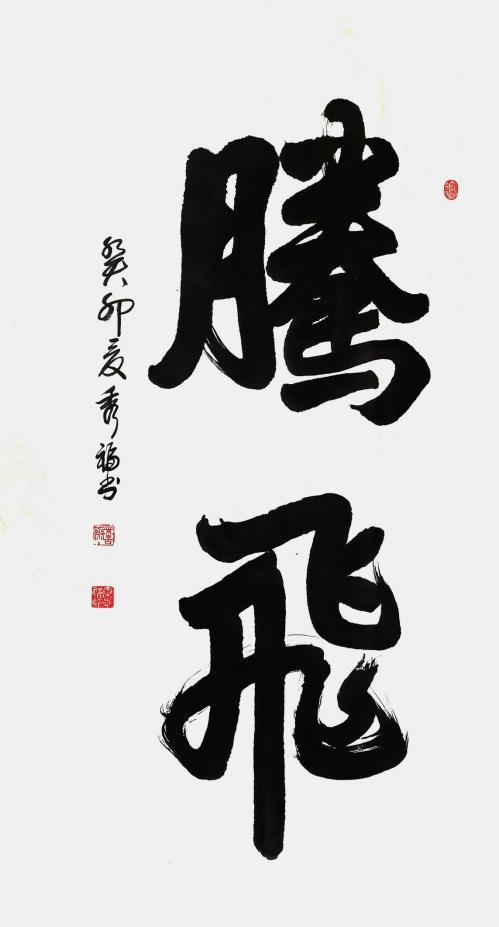 騰飛
癸卯夏秀福书